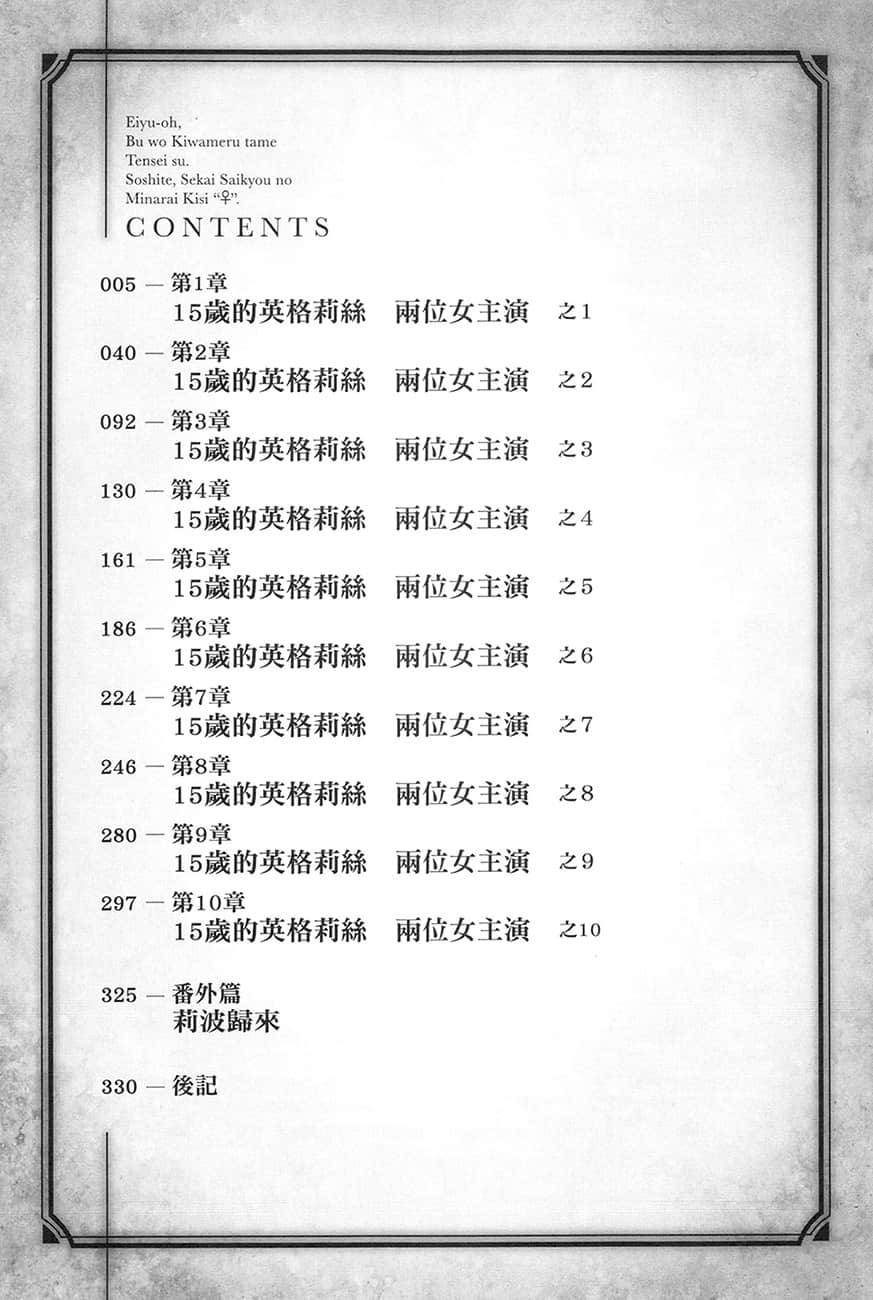 Eiyu-oh,
Bu wo Kiwameru tame
Tensei su.
Soshite, Sekai Saikyou no
Minarai Kisi “♀”.
CONTENTS
005 — 第1章
15歲的英格莉絲　兩位女主演　之1
040 — 第2章
15歲的英格莉絲　兩位女主演　之2
092 — 第3章
15歲的英格莉絲　兩位女主演　之3
130 — 第4章
15歲的英格莉絲　兩位女主演　之4
161 — 第5章
15歲的英格莉絲　兩位女主演　之5
186 — 第6章
15歲的英格莉絲　兩位女主演　之6
224 — 第7章
15歲的英格莉絲　兩位女主演　之7
246 — 第8章
15歲的英格莉絲　兩位女主演　之8
280 — 第9章
15歲的英格莉絲　兩位女主演　之9
297 — 第10章
15歲的英格莉絲　兩位女主演　之10
325 — 番外篇
莉波歸來
330 — 後記